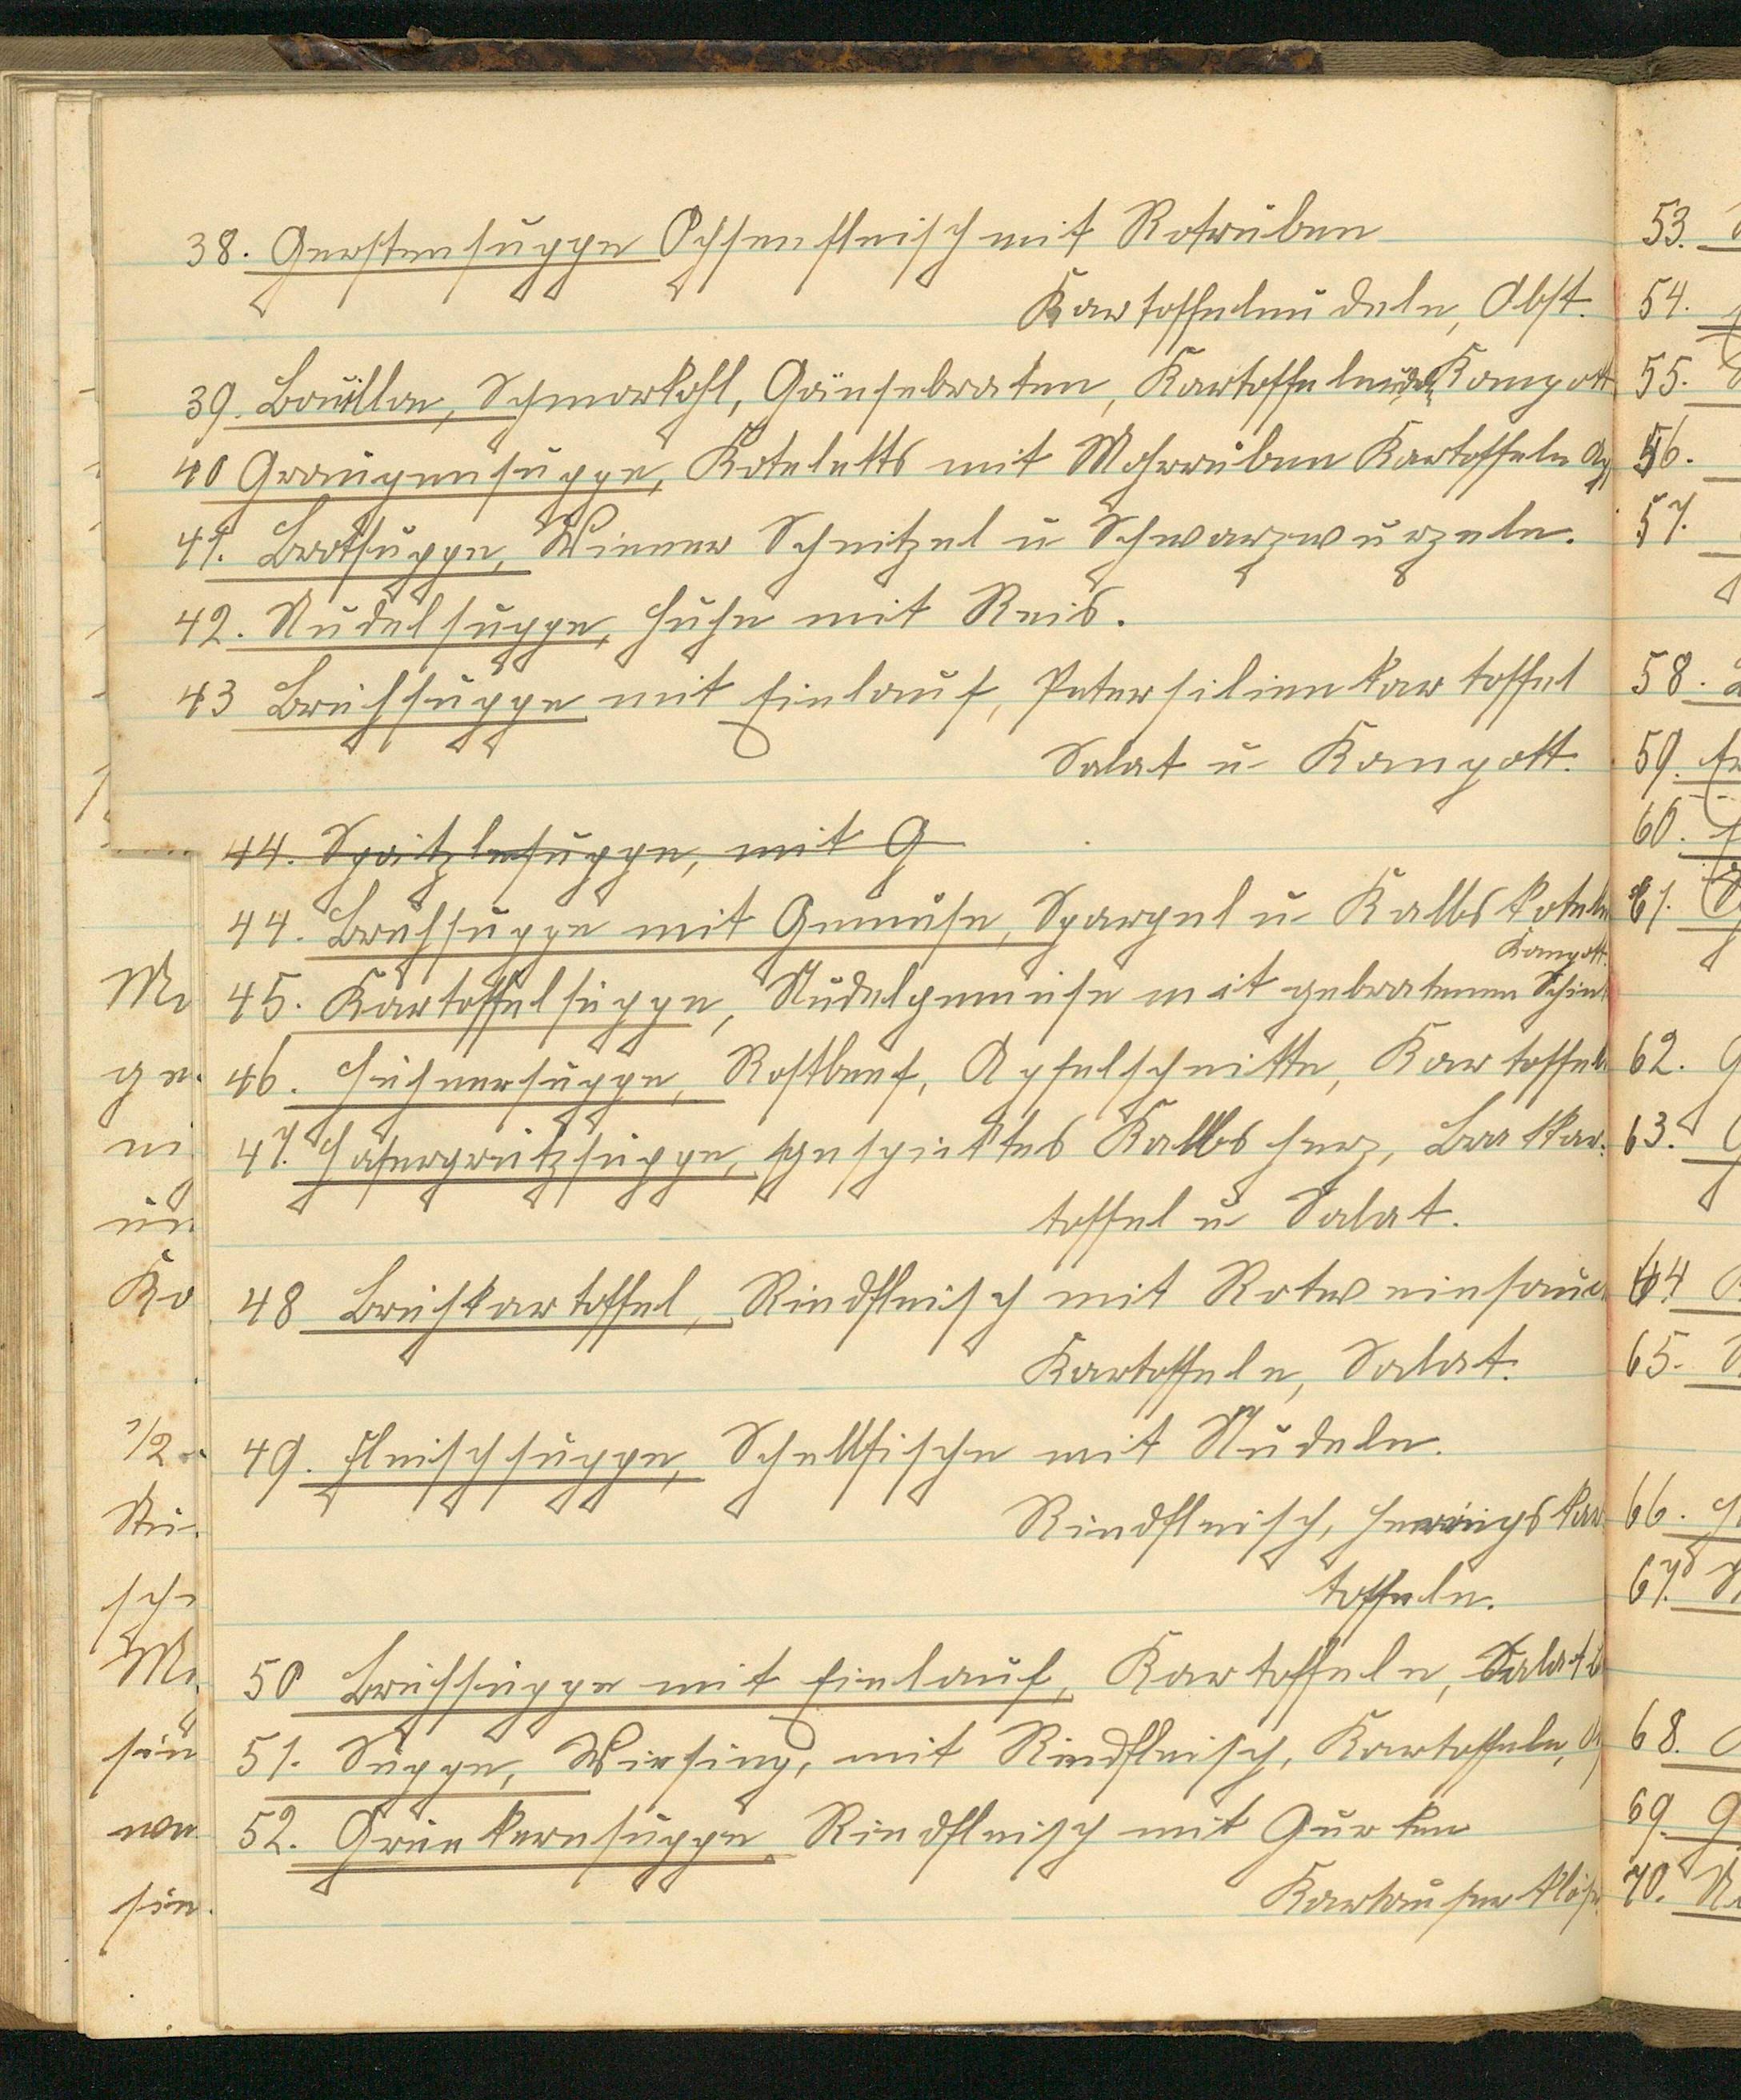 38. Gerstensuppe Ochsenfleisch mit Rotrüben
Kartoffelnudeln, Obst.
39. Bouillon, Schmorkohl, Gänsebraten, Kartoffelnudeln Kompott
40 Graupensuppe, Koteletts mit Mohrrüben Kartoffeln
41. Brotsuppe, Wiener Schnitzel u Schwarzwurzeln.
42. Nudelsuppe, Huhn mit Reis.
43 Brühsuppe mit Einlauf, Petersilienkartoffel
Salat u Kompott.
44. Spätzlesuppe, mit G
44. Brühsuppe mit Gemüse, Spargel u Kalbskotele
Kompott.
45. Kartoffelsuppe, Nudelgemüse mit gebratenem Schin
46. Hühnersuppe, Rostbeef, Apfelschnitte, Kartoffeln
47. Hafergrützsuppe, gespicktes Kalbsherz, Bratkar-
toffel u Salat.
48 Brühkartoffel, Rindfleisch mit Rotweinsauce
Kartoffeln, Salat.
49. Fleischsuppe, Schellfische mit Nudeln.
Rindfleisch, Heringskar
toffeln.
50 Brühsuppe mit Einlauf, Kartoffeln, Salat
51. Suppe, Wirsing, mit Rindfleisch, Kartoffeln,
52. Grünkernsuppe Rindfleisch mit Gurken
Kartäuserklöse
53.
54.
55.
56.
57.
58.
59.
60.
61.
62.
63.
64
65.
66.
67.
68.
69.
70.